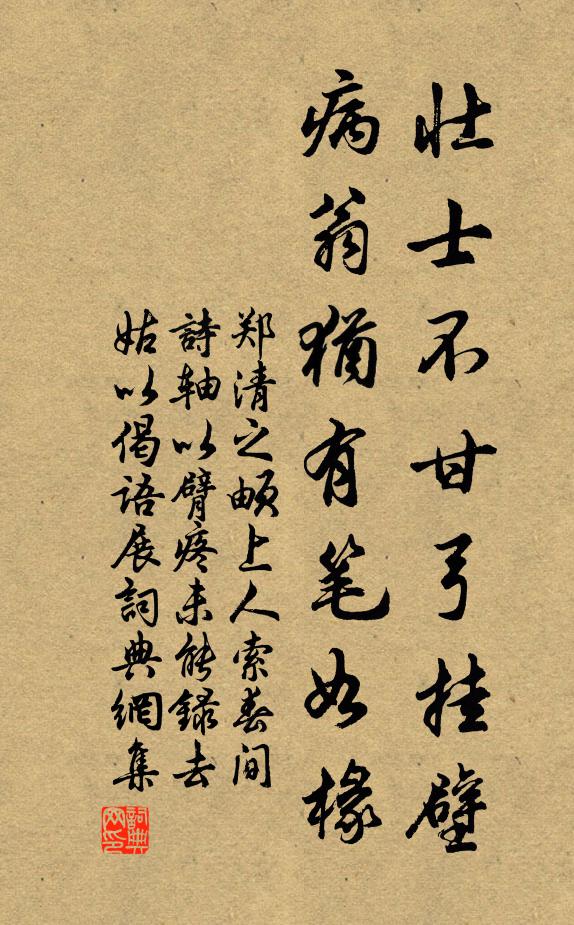 壮士不甘弓挂壁
病翁犹有笔如椽
郑清之頔上人索春间
詩轴以臂疼未能録去
姑以偈語展詞典網集
詞典网印